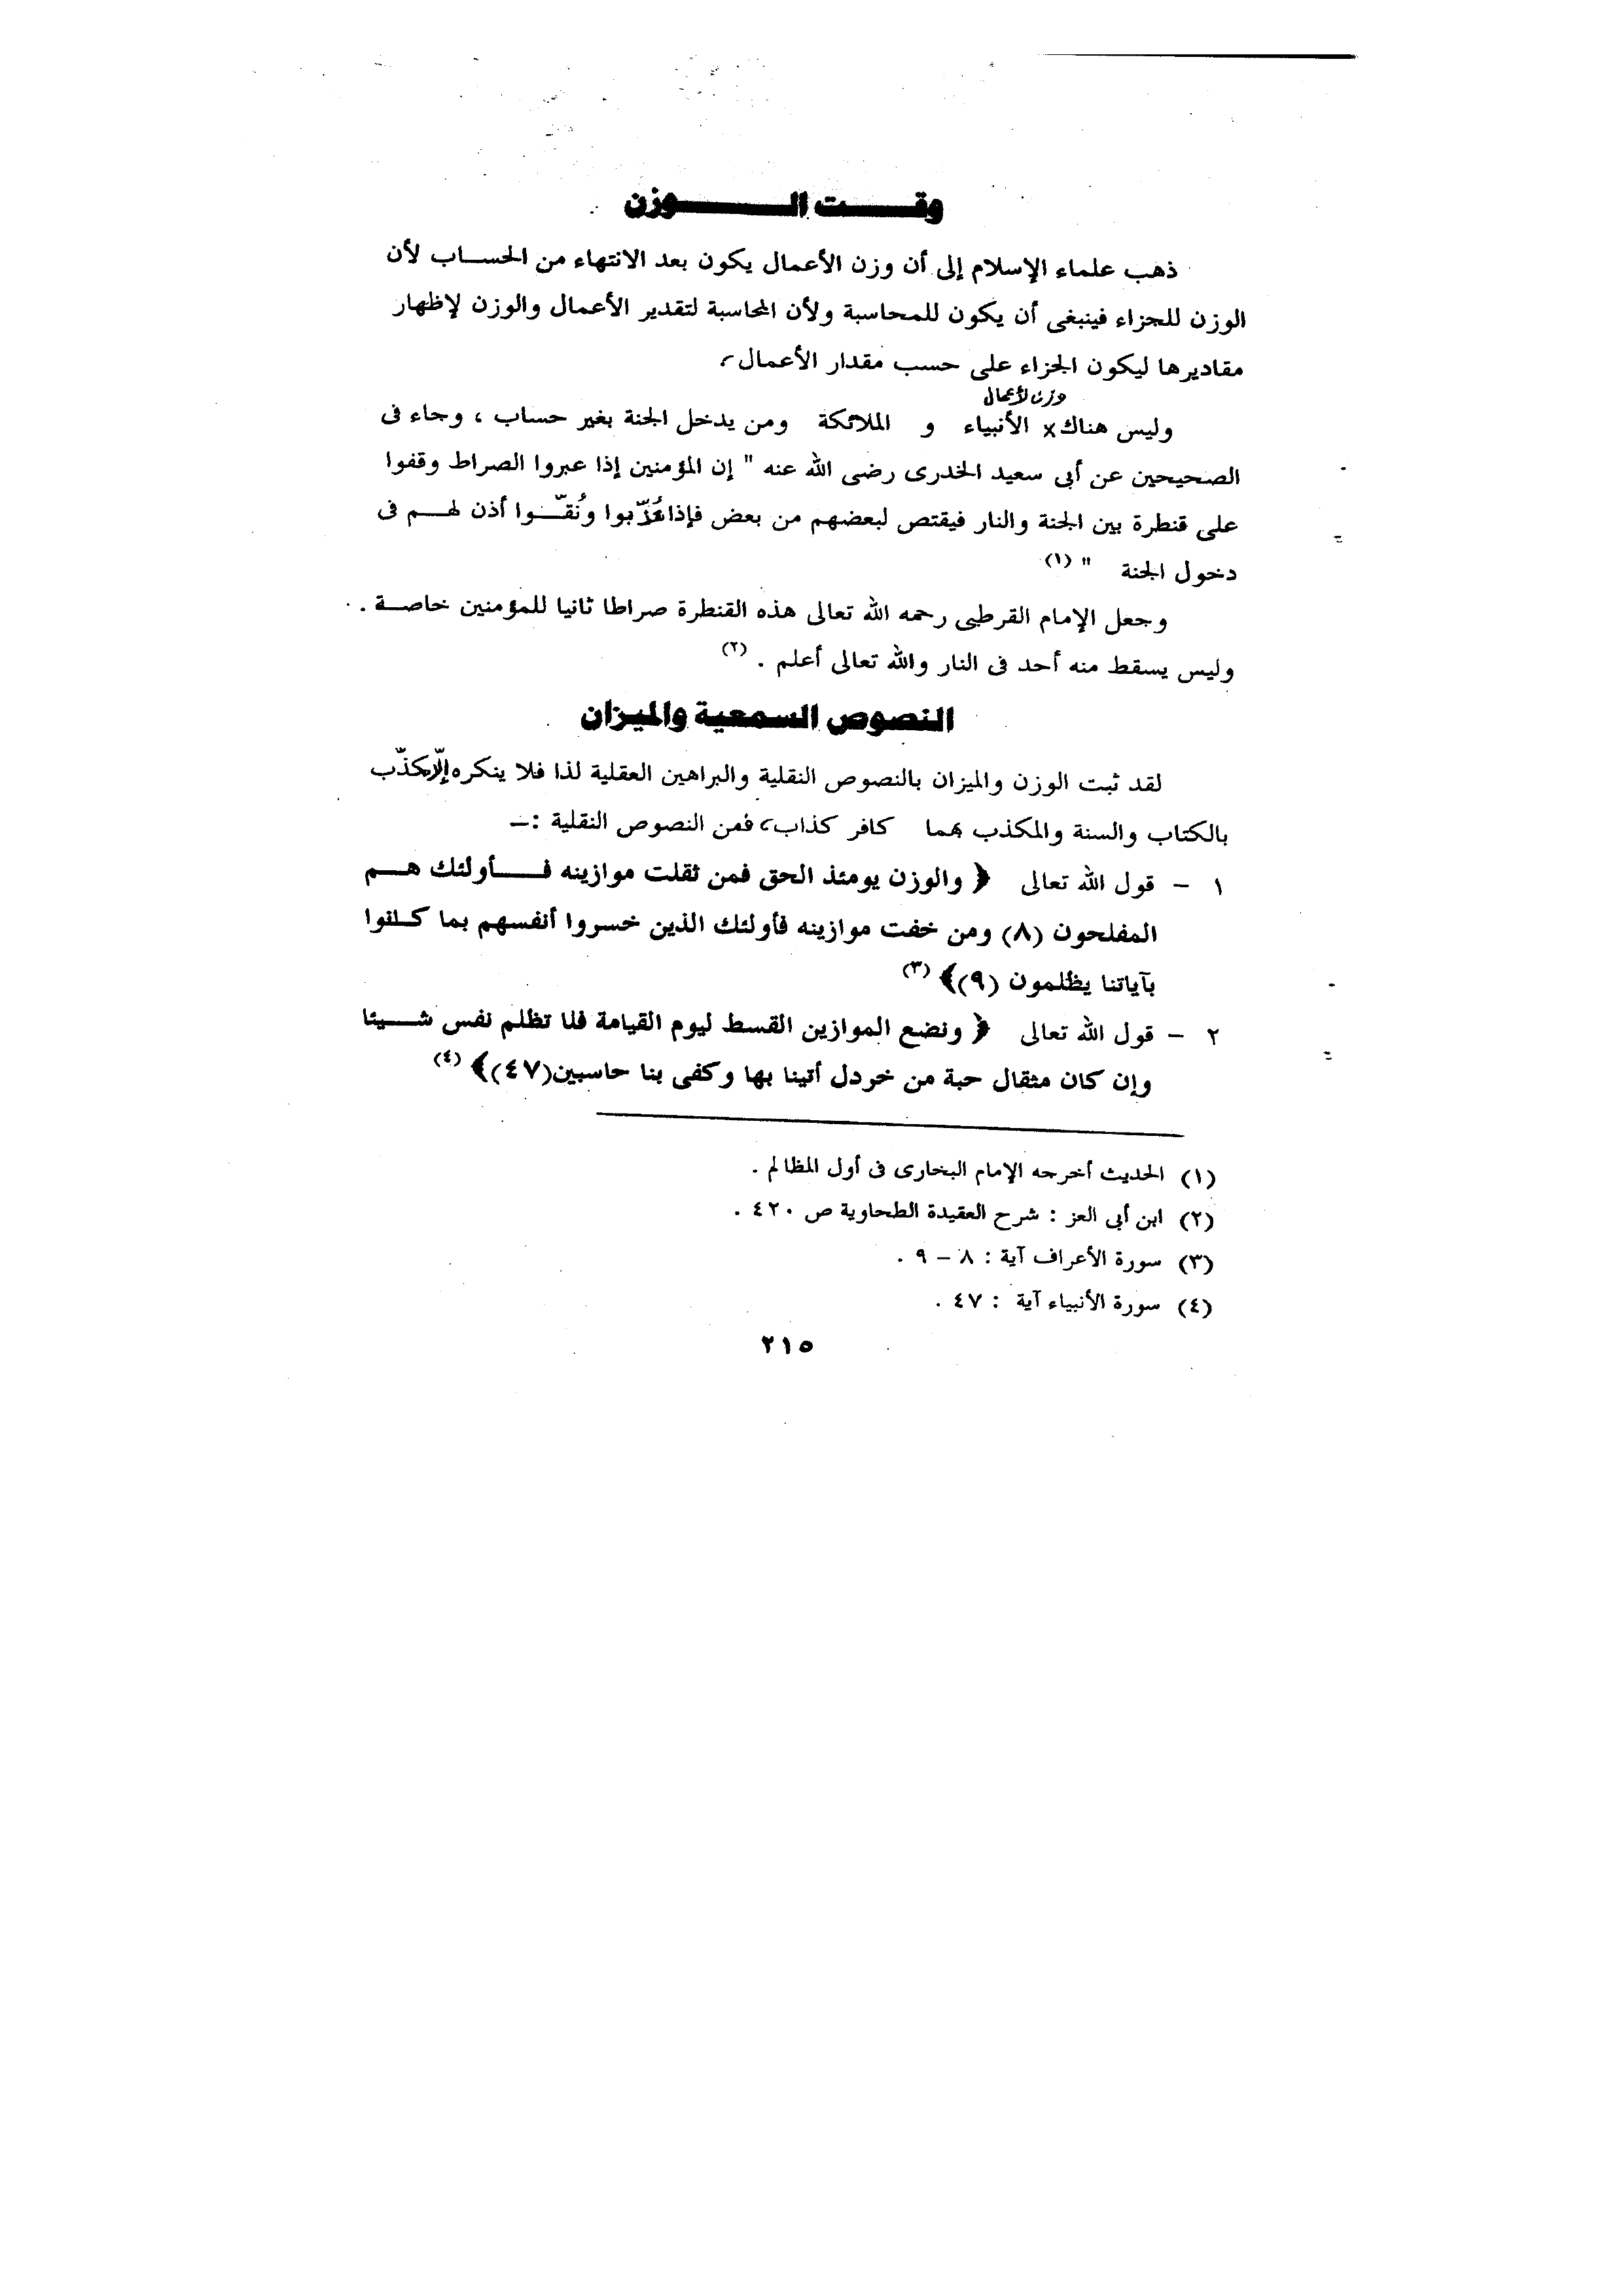 وقـــت الــــــوزن
ذهب علماء الإسلام إلى أن وزن الأعمال يكون بعد الانتهاء من الحســاب لأن
الوزن للجزاء فينبغى أن يكون للمحاسبة ولأن المحاسبة لتقدير الأعمال والوزن لإظهار
مقاديرها ليكون الجزاء على حسب مقدار الأعمال ،
وزن لأعمال
وليس هناك x الأنبياء و الملائكة ومن يدخل الجنة بغير حساب ، وجاء فى
الصحيحين عن أبى سعيد الخدرى رضى الله عنه " إن المؤمنين إذا عبروا الصراط وقفوا
على قنطرة بين الجنة والنار فيقتص لبعضهم من بعض فإذا وُنُقـّـوا أذن لهـــم فى
دخول الجنة " (١)
وجعل الإمام القرطبى رحمه الله تعالى هذه القنطرة صراطا ثانيا للمؤمنين خاصــة .
وليس يسقط منه أحد فى النار والله تعالى أعلم . (٢)
النصوص السمعية والميزان
لقد ثبت الوزن والميزان بالنصوص النقلية والبراهين العقلية لذا فلا ينكره إلّا
بالكتاب والسنة والمكذب بهما كافر كذاب ، فمن النصوص النقلية :ــ
١ - قول الله تعالى ﴿ والوزن يومئذ الحق فمن ثقلت موازينه فــــأولئك هـــم
المفلحون (٨) ومن خفت موازينه فأولئك الذين خسروا أنفسهم بما كــانوا
بآياتنا يظلمون (٩)﴾ (٣)
٢ - قول الله تعالى ﴿ ونضع الموازين القسط ليوم القيامة فلا تظلم نفس شـــيئا
وإن كان مثقال حبة من خردل أتينا بها وكفى بنا حاسبين(٤٧)﴾ (٤)
(١) الحديث أخرجه الإمام البخارى فى أول المظالم .
(٢) ابن أبى العز : شرح العقيدة الطحاوية ص ٤٢٠ .
(٣) سورة الأعراف آية : ٨ – ٩ .
(٤) سورة الأنبياء آية : ٤٧ .
٢١٥